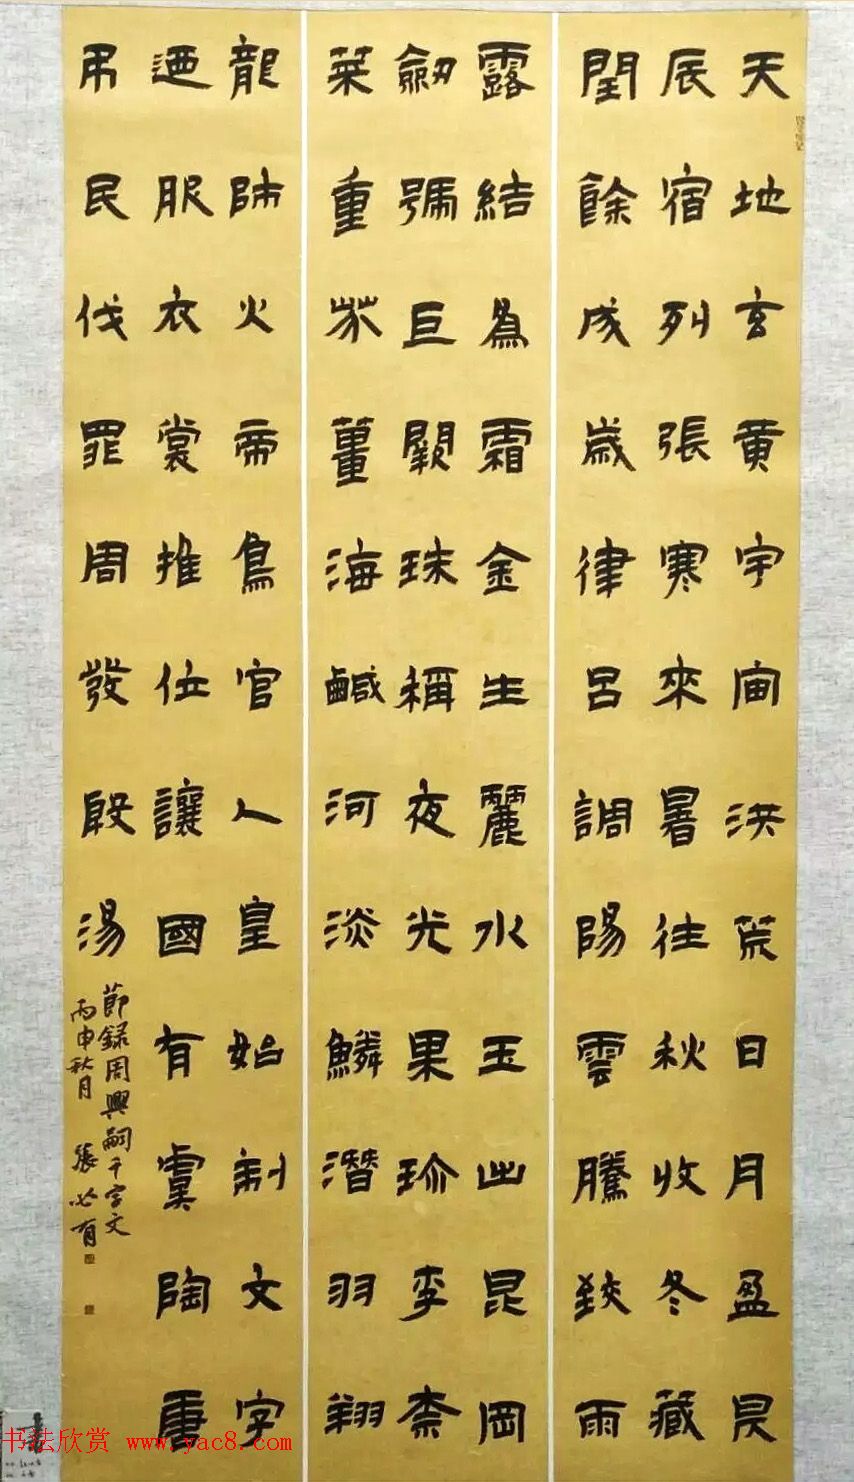 天地玄黄宇宙洪荒日月盈昃
辰宿列張寒來暑往秋收冬藏
閏餘成歲律吕調陽雲騰致雨
露結為霜金生麗水玉出昆岡
劒號巨闕珠稱夜光果珍李柰
菜重芥薑海鹹河淡鱗潛羽翔
龍師火帝鳥官人皇始制文字
迺服衣裳推位讓國有虞陶唐
弔民伐罪周發殷湯
節録周興嗣千字文
丙申秋月 張必有
书法欣赏 www.yac8.com